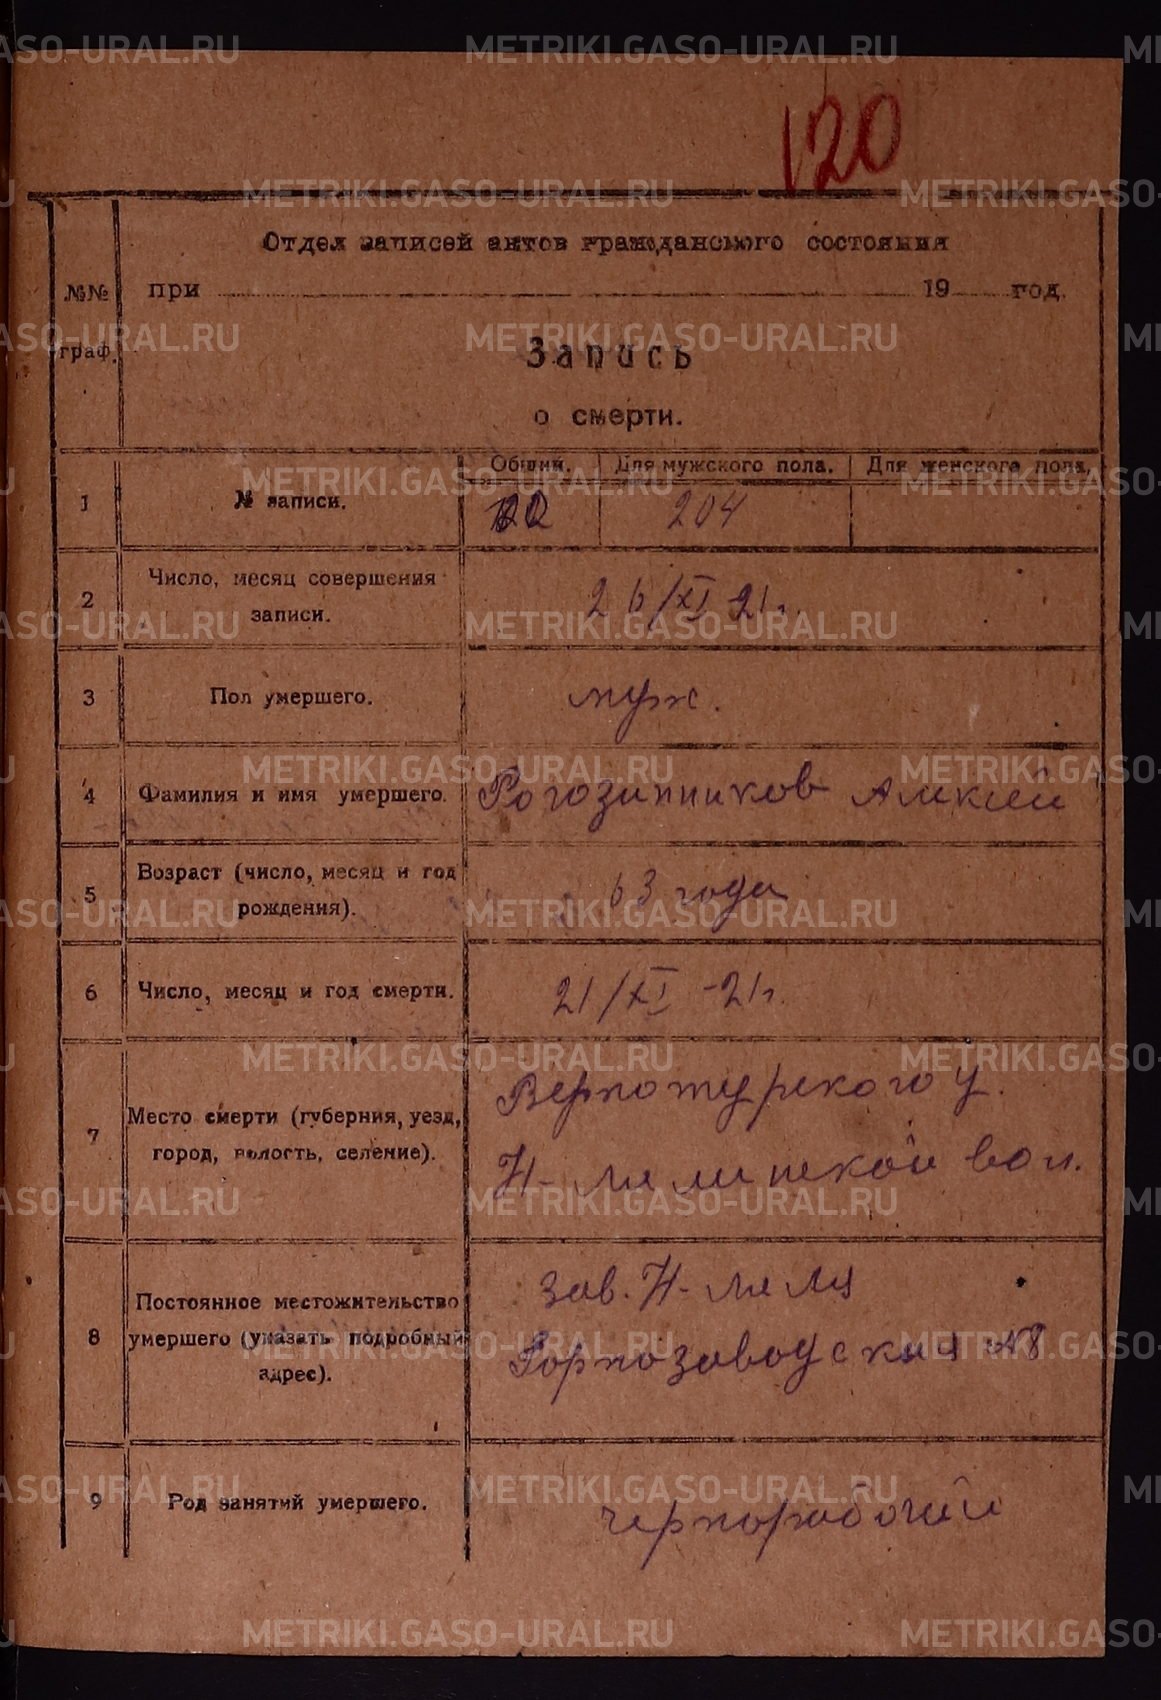 120
Отдел записей актов гражданского состояния
№№ граф.
при 19 год.
Запись
о смерти.
Общий. Для мужского пола. Для женского пола.
1 № записи. 204
2 Число, месяц совершения записи. 26/XI 21г.
3 Пол умершего. муж.
4 Фамилия и имя умершего. Рогозинников Алексей
5 Возраст (число, месяц и год рождения). 63 года
6 Число, месяц и год смерти. 21/XI -21г.
7 Место смерти (губерния, уезд, город, волость, селение). Верхотурского у.
Н-Лялинской вол.
8 Постоянное местожительство умершего (указать подробный адрес). зав. Н-Ляля
Горнозаводская №8
9 Род занятий умершего. чернорабочий
METRIKI.GASO-URAL.RU